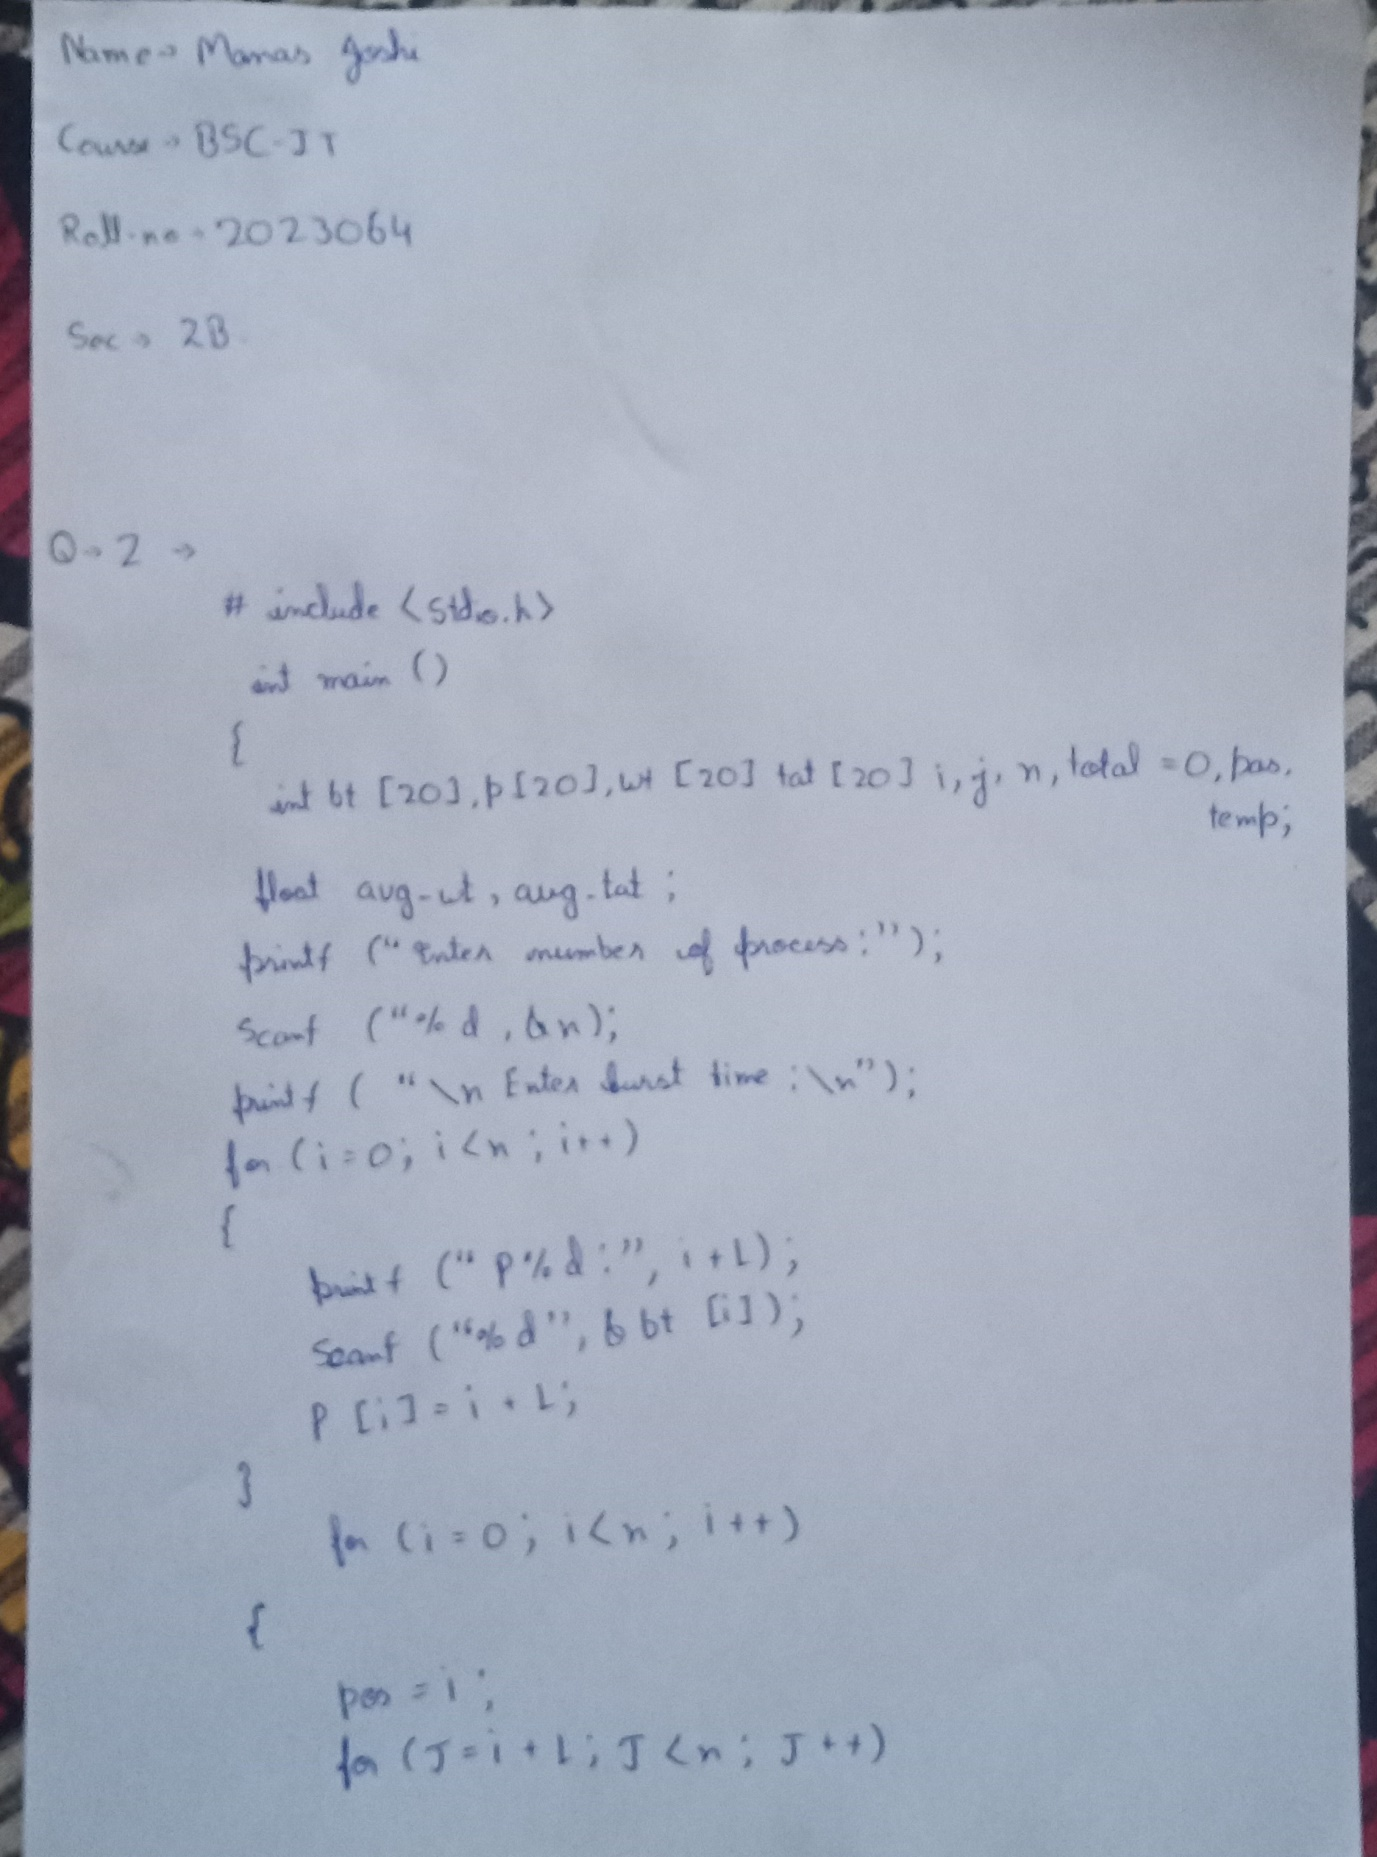 Name → Manas Joshi
Course → BSC-IT
Roll-no - 2023064
Sec → 2B
Q → 2 →
# include <stdio.h>
int main ()
{
int bt [20], p [20], wt [20] tat [20] i, j, n, total = 0, pos,
temp;
float avg-wt, avg-tat ;
printf (" Enter number of process : ");
Scanf ("% d , & n);
printf ( " \n Enter burst time : \n");
for (i = 0; i < n ; i++)
{
printf (" P % d : ", i + 1);
Scanf ("% d ", & bt [i]);
P [i] = i + 1;
}
for (i = 0; i < n; i ++)
{
pos = i ;
for (J = i + 1; J < n; J ++)